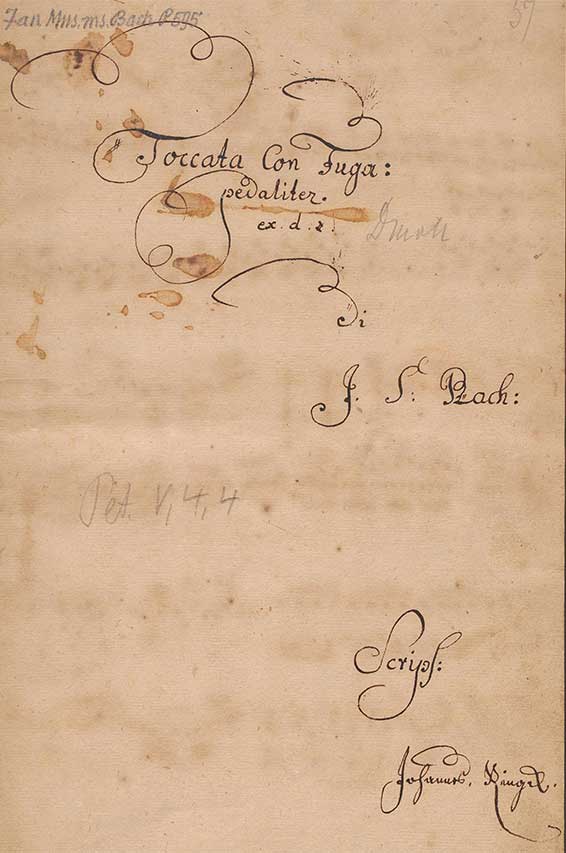 Fan Mus.ms. Bach P 595
57
Toccata Con Fuga:
pedaliter.
ex. d. #.
D moll
di
J. S. Bach:
Pet. V, 4, 4
Scrips:
Johannes. Ringk.